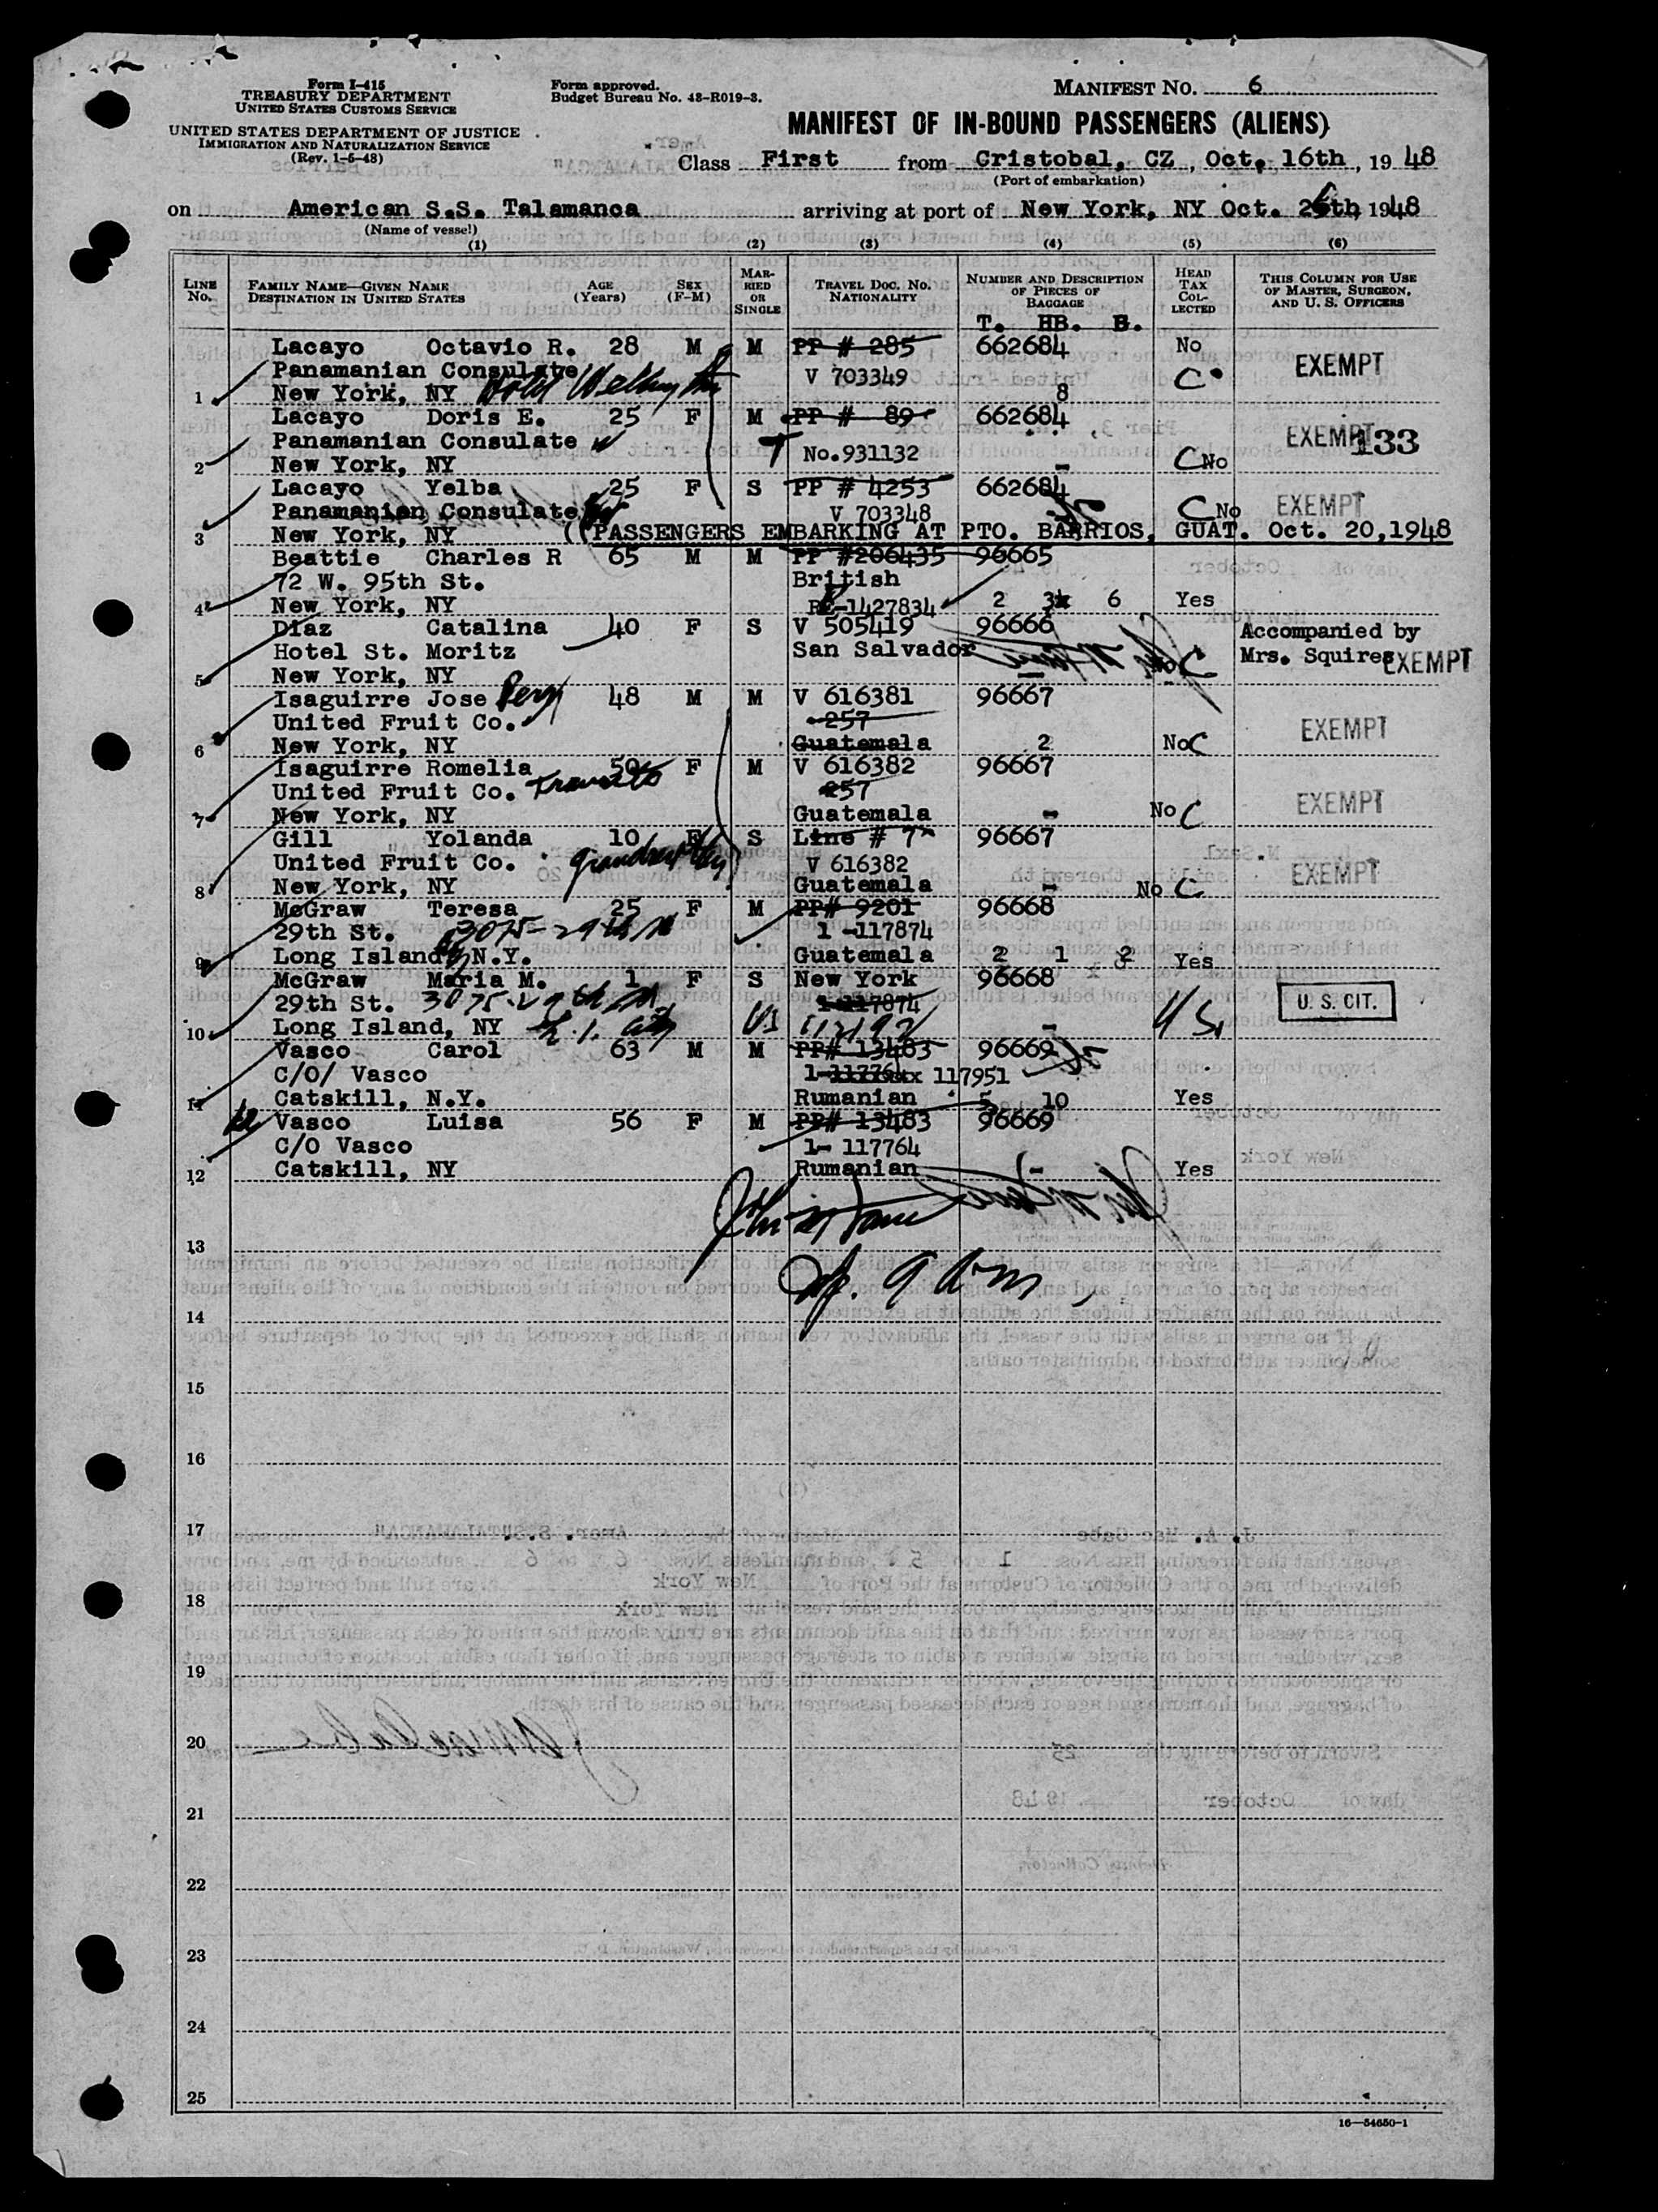 Form I-415
TREASURY DEPARTMENT
UNITED STATES CUSTOMS SERVICE
UNITED STATES DEPARTMENT OF JUSTICE
IMMIGRATION AND NATURALIZATION SERVICE
(Rev. 1-5-48)
Form approved.
Budget Bureau No. 43-R019-3.
MANIFEST NO. 6
MANIFEST OF IN-BOUND PASSENGERS (ALIENS)
Class First from Cristobal, CZ, Oct. 16th, 19 48
(Port of embarkation)
on American S.S. Talamanca arriving at port of New York, NY Oct. 26th, 1948
(Name of vessel)
(1) (2) (3) (4) (5) (6)
LINE No. FAMILY NAME—GIVEN NAME DESTINATION IN UNITED STATES AGE (Years) SEX (F-M) MARRIED OR SINGLE TRAVEL DOC. NO. NATIONALITY NUMBER AND DESCRIPTION OF PIECES OF BAGGAGE HEAD TAX COLLECTED THIS COLUMN FOR USE OF MASTER, SURGEON, AND U. S. OFFICERS
T. HB. B.
Lacayo Octavio R. 28 M M PP # 285 662684 No EXEMPT
Panamanian Consulate V 703349 C
1 New York, NY Hotel Wellington 8
Lacayo Doris E. 25 F M PP # 89 662684 EXEMPT 133
Panamanian Consulate T No.931132
2 New York, NY - C No
Lacayo Yelba 25 F S PP # 4253 662684 EXEMPT
Panamanian Consulate V 703348 C No
3 New York, NY ((PASSENGERS EMBARKING AT PTO. BARRIOS, GUAT. Oct. 20,1948
Beattie Charles R 65 M M PP #206435 96665
72 W. 95th St. British
4 New York, NY RE-1427834 2 3 6 Yes
Diaz Catalina 40 F S V 505419 96666 Accompanied by
Hotel St. Moritz San Salvador Mrs. Squires EXEMPT
5 New York, NY - No C
Isaguirre Jose Perez 48 M M V 616381 96667
United Fruit Co. 257 EXEMPT
6 New York, NY Guatemala 2 No C
Isaguirre Romelia 50 F M V 616382 96667
United Fruit Co. Transito 257 EXEMPT
7 New York, NY Guatemala - No C
Gill Yolanda 10 F S Line # 7 96667
United Fruit Co. grandaughter V 616382 EXEMPT
8 New York, NY Guatemala - No C
McGraw Teresa 25 F M PP# 9201 96668
29th St. 3075-29th St 1 -117874
9 Long Island, N.Y. Guatemala 2 1 2 Yes
McGraw Maria M. 1 F S New York 96668
29th St. 3075-29th St 1-117874 U. S. CIT.
10 Long Island, NY L. I. City US - US
Vasco Carol 63 M M PP# 13483 96669
C/O/ Vasco 117951
11 Catskill, N.Y. Rumanian 5 10 Yes
Vasco Luisa 56 F M PP# 13483 96669
C/O Vasco 1- 117764
12 Catskill, NY Rumanian - Yes
13
14
15
16
17
18
19
20
21
22
23
24
25
16—54650-1